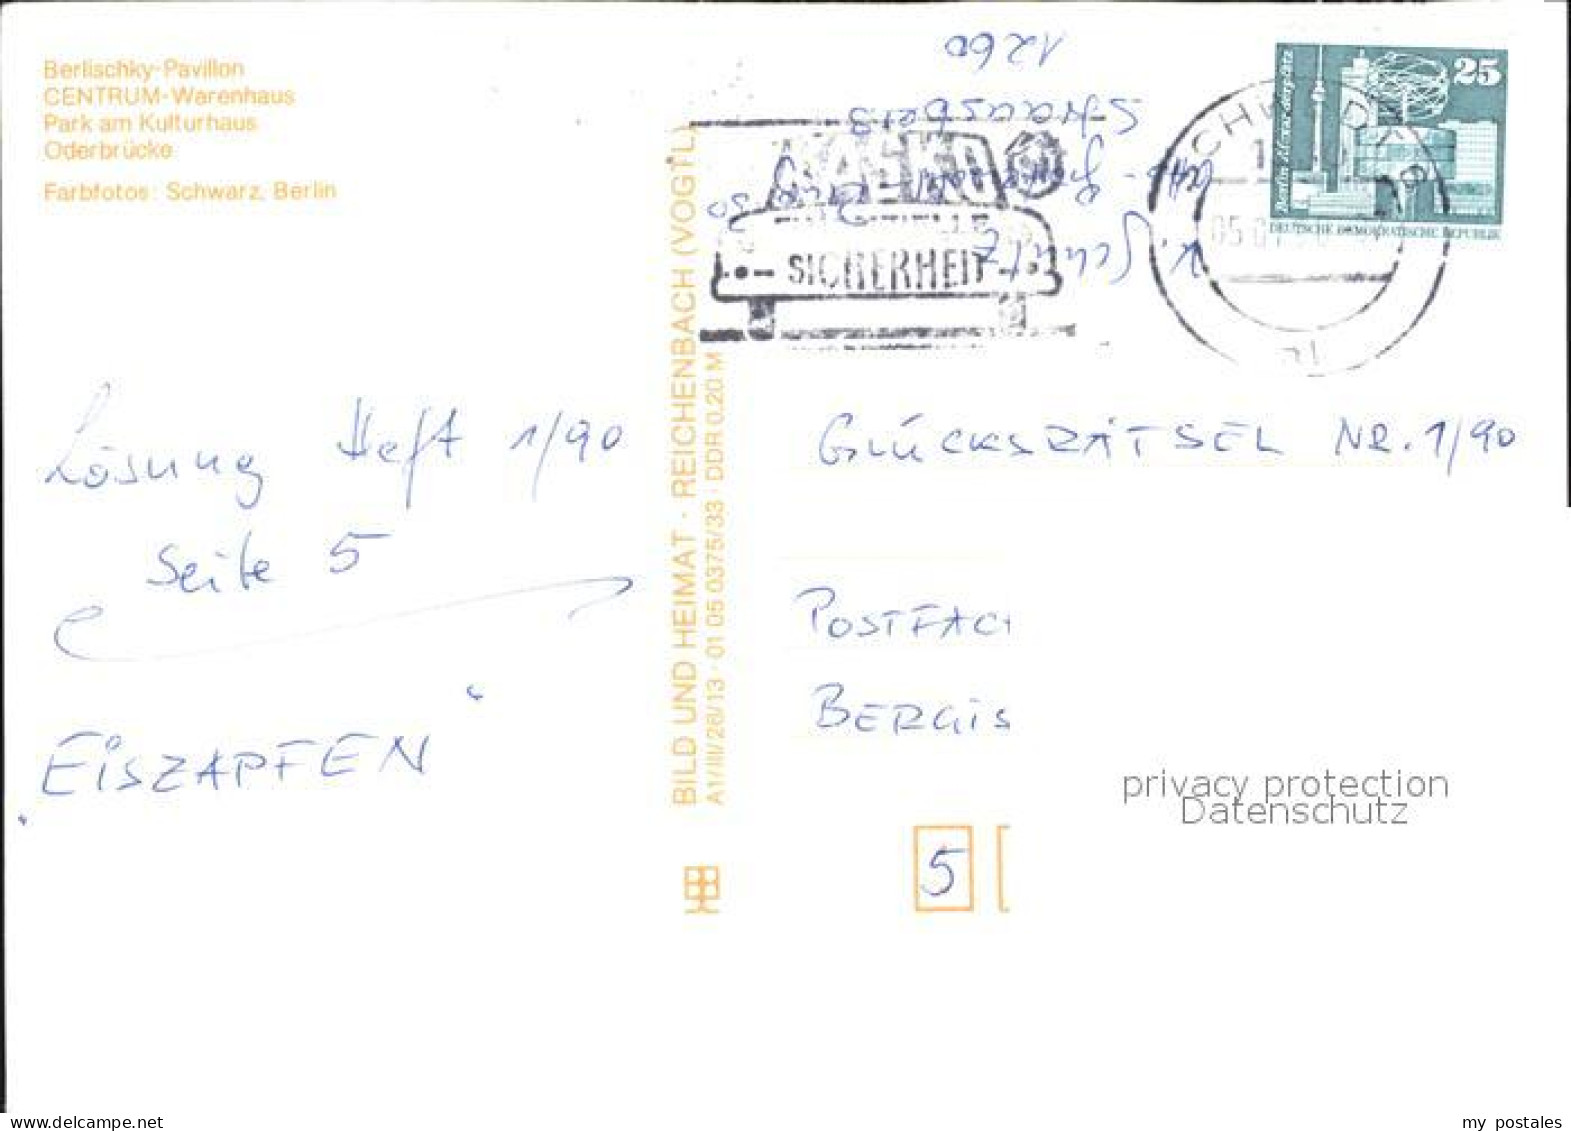 Berlischky-Pavillon
CENTRUM-Warenhaus
Park am Kulturhaus
Oderbrücke
Farbfotos: Schwarz, Berlin
Lösung Heft 1/90
Seite 5
"EISZAPFEN"
BILD UND HEIMAT · REICHENBACH (VOGTL)
A1/III/26/13 · 01 05 0375/33 · DDR 0,20 M
1260
Strausberg
K. Schulz
SICHERHEIT
25
Berlin, Alexanderplatz
DEUTSCHE DEMOKRATISCHE REPUBLIK
GLÜCKSRÄTSEL NR. 1/90
POSTFACH
BERGIS
5
privacy protection
Datenschutz
my postales